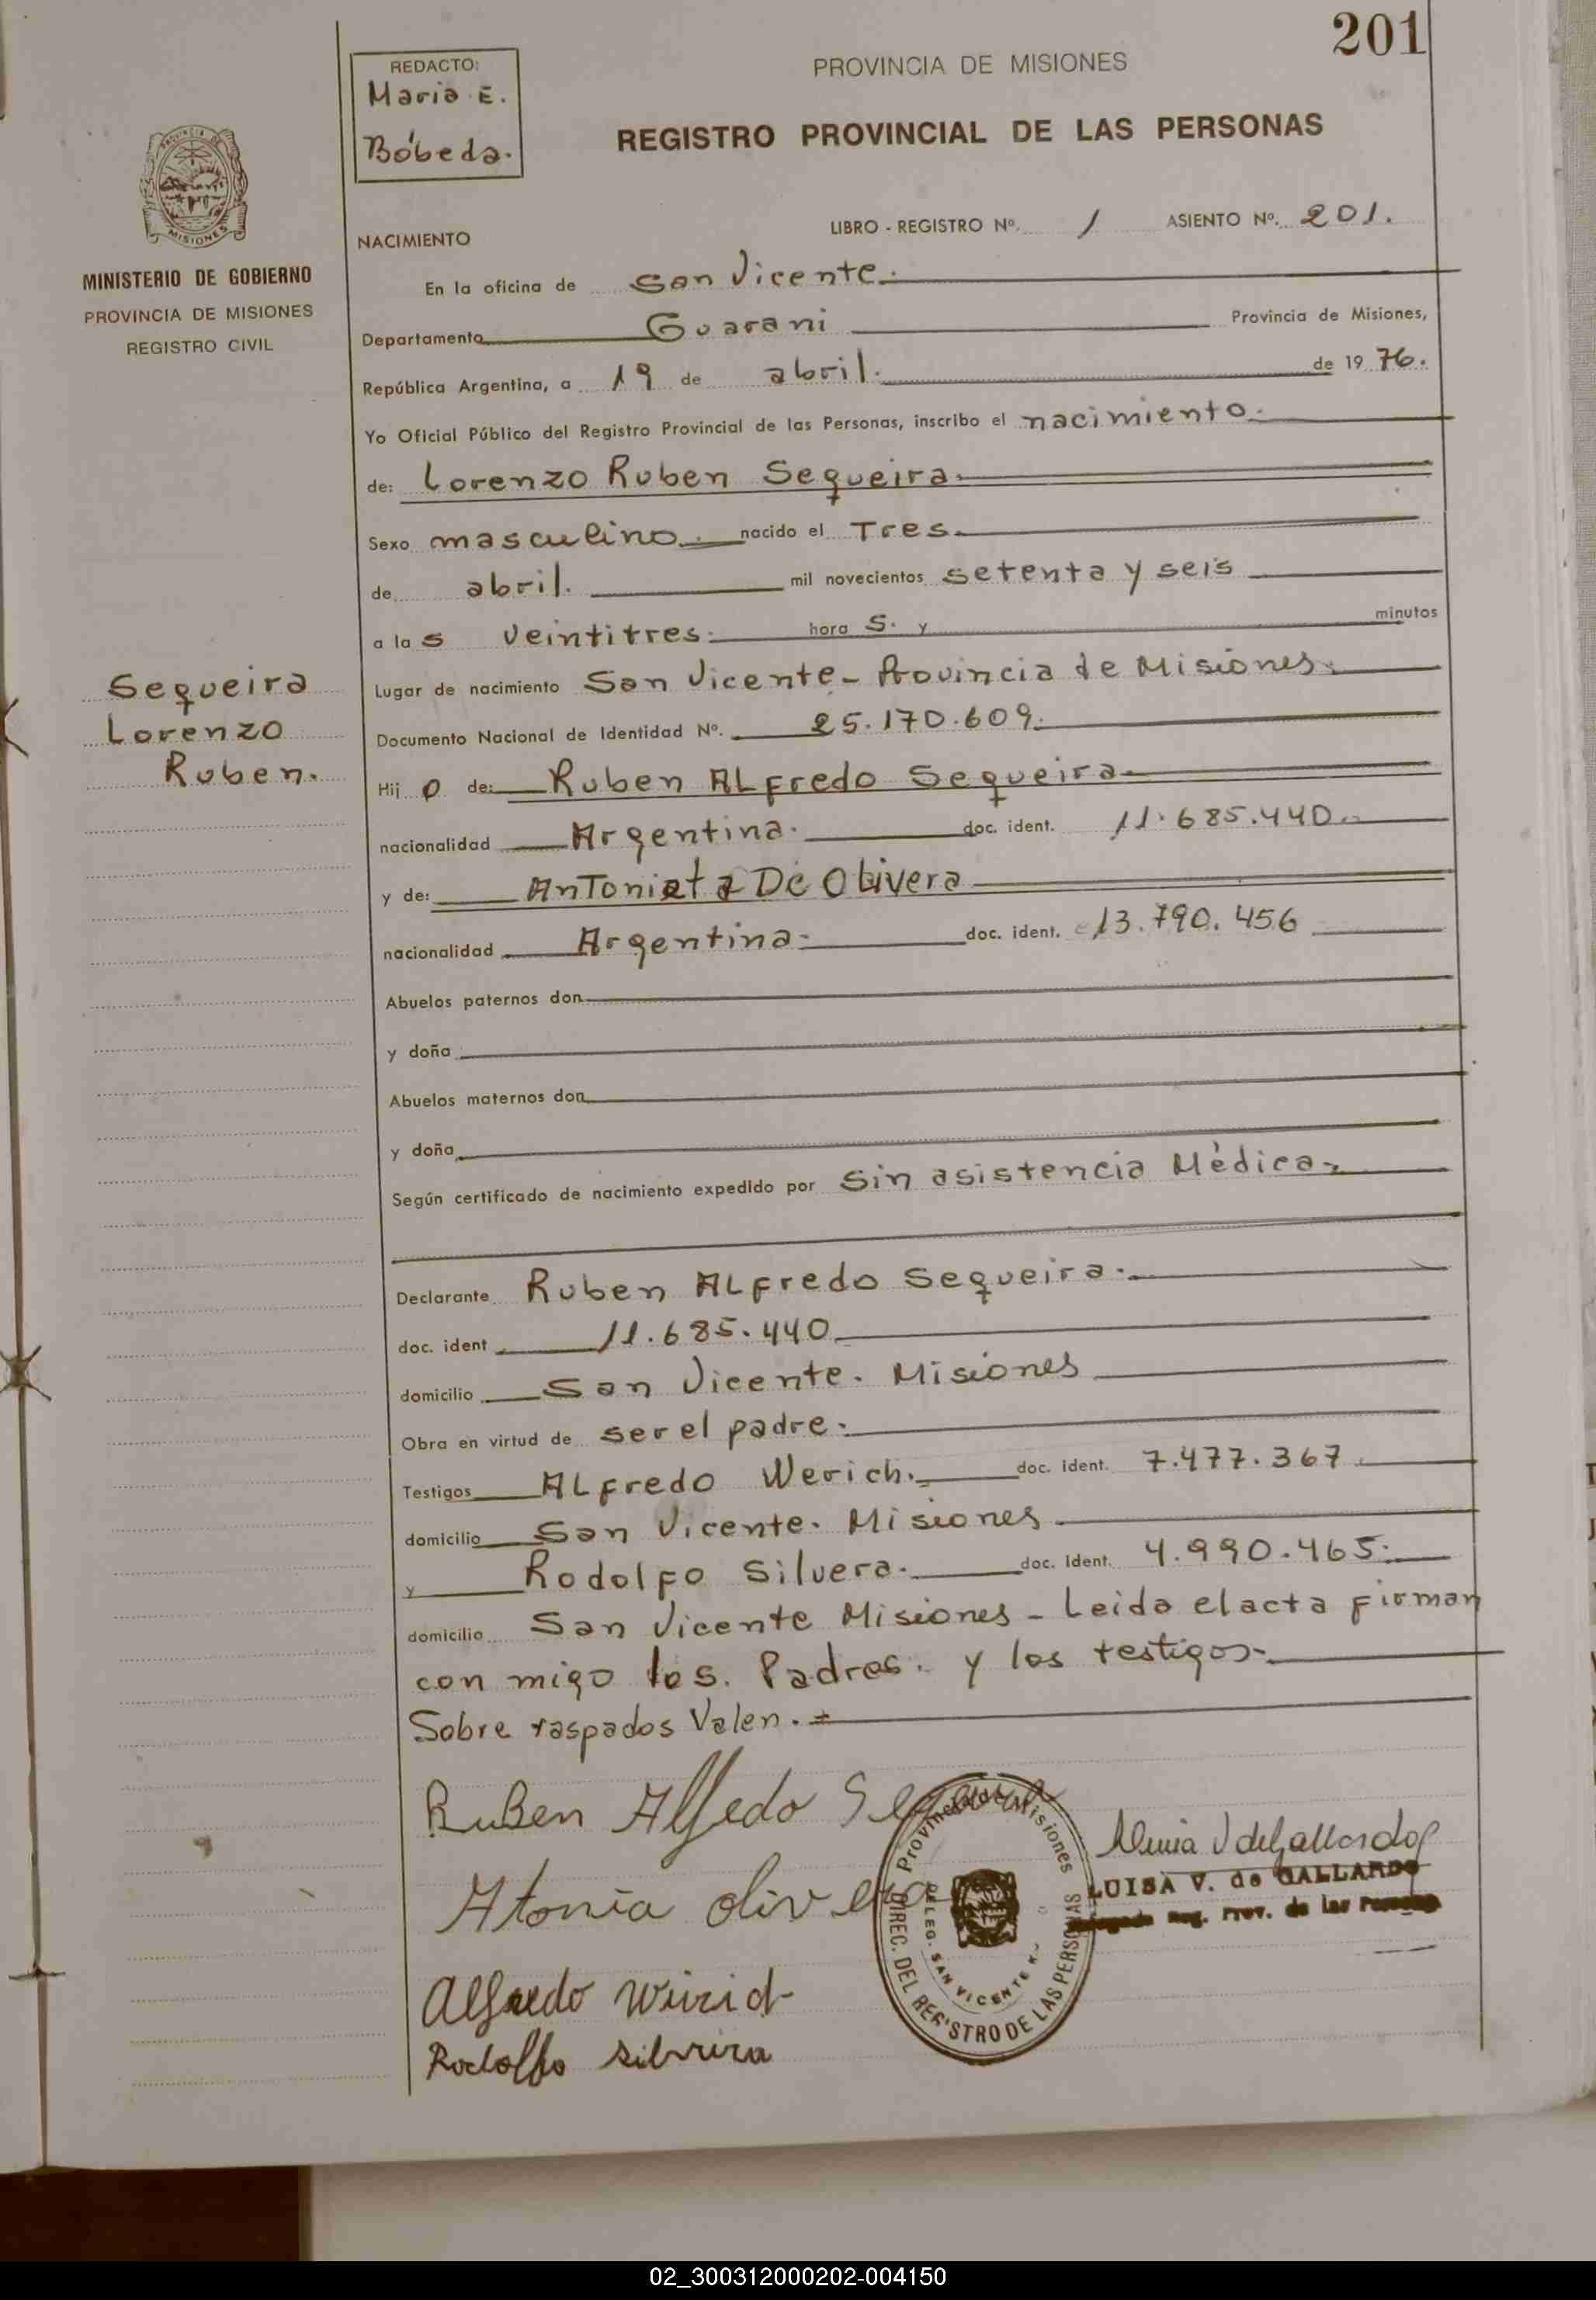 201
REDACTO:
Maria E.
Bóbeda.
PROVINCIA DE MISIONES
REGISTRO PROVINCIAL DE LAS PERSONAS
PROVINCIA DE
MISIONES
MINISTERIO DE GOBIERNO
PROVINCIA DE MISIONES
REGISTRO CIVIL
NACIMIENTO
LIBRO - REGISTRO Nº. 1 ASIENTO Nº. 201.
En la oficina de San Vicente.
Departamento Guarani Provincia de Misiones,
República Argentina, a 19 de abril. de 1976.
Yo Oficial Público del Registro Provincial de las Personas, inscribo el nacimiento.
de: Lorenzo Ruben Sequeira.
Sexo masculino. nacido el Tres.
de abril. mil novecientos setenta y seis
a las veintitres. hora s. y minutos
Sequeira
Lorenzo
Ruben.
Lugar de nacimiento San Vicente - Provincia de Misiones.
Documento Nacional de Identidad Nº. 25.170.609.
Hijo de: Ruben Alfredo Sequeira.
nacionalidad Argentina. doc. ident. 11.685.440.
y de: Antonieta De Olivera
nacionalidad Argentina. doc. ident. 13.790.456
Abuelos paternos don
y doña
Abuelos maternos don
y doña
Según certificado de nacimiento expedido por Sin asistencia Mèdica.
Declarante Ruben Alfredo Sequeira.
doc. ident 11.685.440
domicilio San Vicente. Misiones
Obra en virtud de ser el padre.
Testigos Alfredo Werich. doc. ident. 7.477.367
domicilio San Vicente. Misiones
y Rodolfo Silvera. doc. ident. 4.990.465.
domicilio San Vicente Misiones - Leida el acta firman
con migo los. Padres. y los testigos.
Sobre raspados Valen.
RuBen Alfedo
Atonia olivera
Alfredo
Rodolfo Silveira
Provincia de Misiones
DELEG. SAN VICENTE
DIREC. DEL REGISTRO DE LAS PERSONAS
LUISA V. de GALLARDO
Reg. Prov. de las Personas
02_300312000202-004150